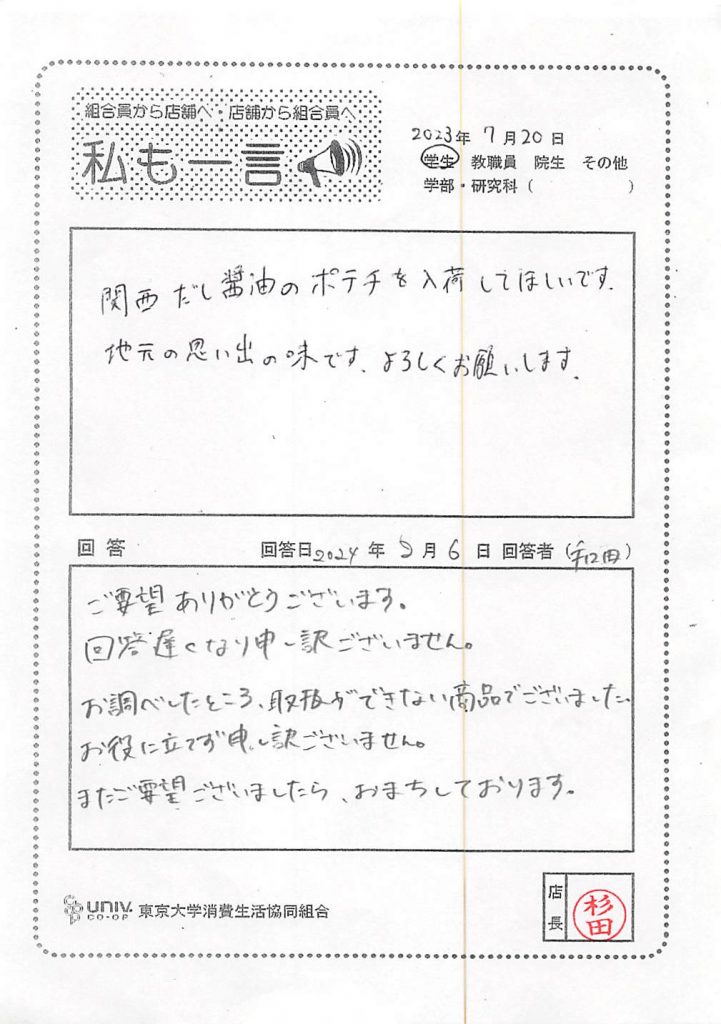 組合員から店舗へ・店舗から組合員へ
私も一言
2023年 7月20日
学生 教職員 院生 その他
学部・研究科（ ）
関西だし醤油のポテチを入荷してほしいです.
地元の思い出の味です.よろしくお願いします.
回答 回答日2024年5月6日 回答者（和田）
ご要望ありがとうございます。
回答遅くなり申し訳ございません。
お調べしたところ、取扱ができない商品でございました。
お役に立てず申し訳ございません。
またご要望ございましたら、おまちしております。
UNIV. CO-OP 東京大学消費生活協同組合
店長 杉田